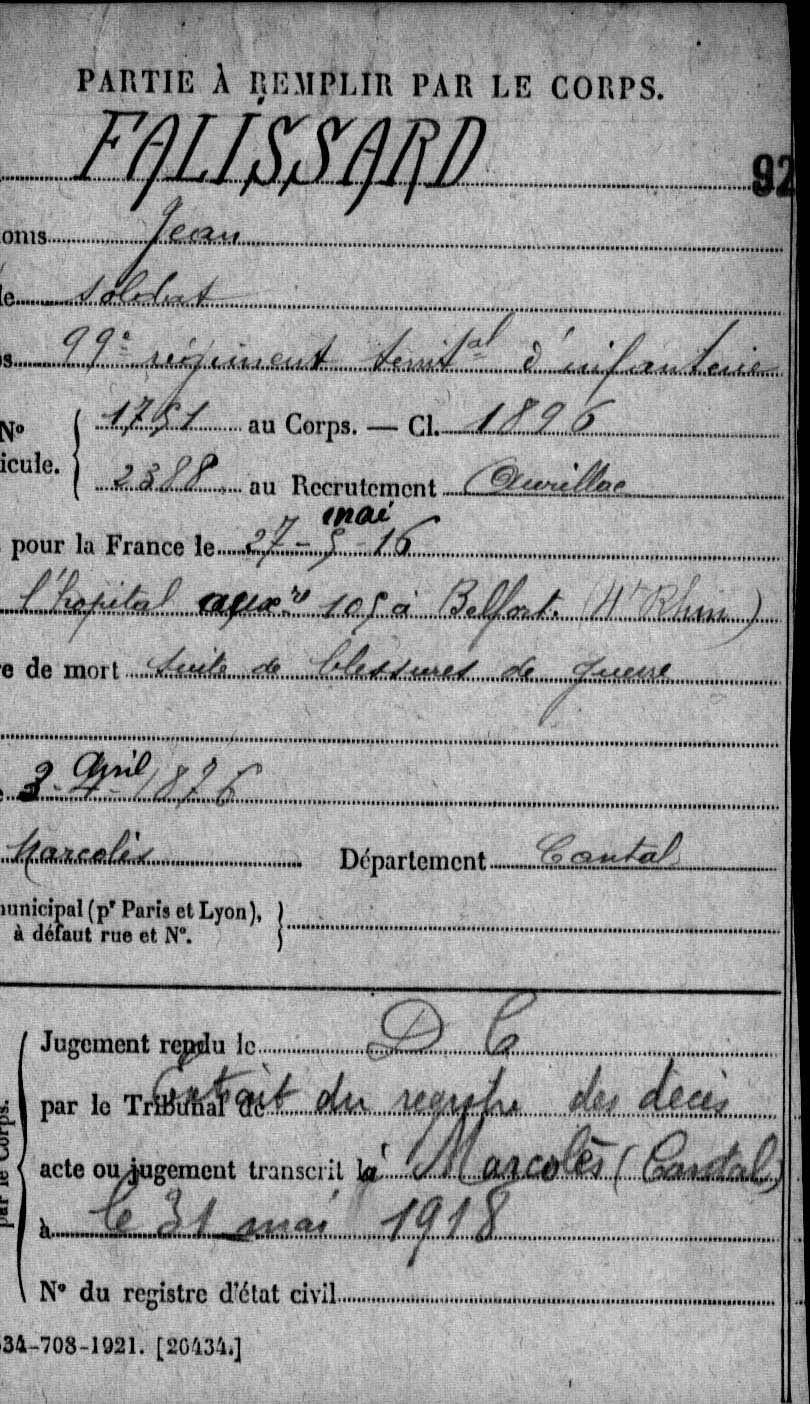 PARTIE À REMPLIR PAR LE CORPS.
FALISSARD
92
oms Jean
le soldat
s 99e régiment territal d'infanterie
No 1751 au Corps. — Cl. 1896
icule. 2388 au Recrutement Aurillac
mai
pour la France le 27-5-16
l'hopital auxre 105 à Belfort. (Ht Rhin)
e de mort suite de blessures de guerre
Avril
3-4-1876
Marcolès Département Cantal
municipal (pr Paris et Lyon),
à défaut rue et No.
Jugement rendu le D C
par le Tribunal de Extrait du registre des décès
acte ou jugement transcrit le à Marcolès (Cantal)
à le 31 mai 1918
No du registre d'état civil
par le Corps.
534-708-1921. [26434.]